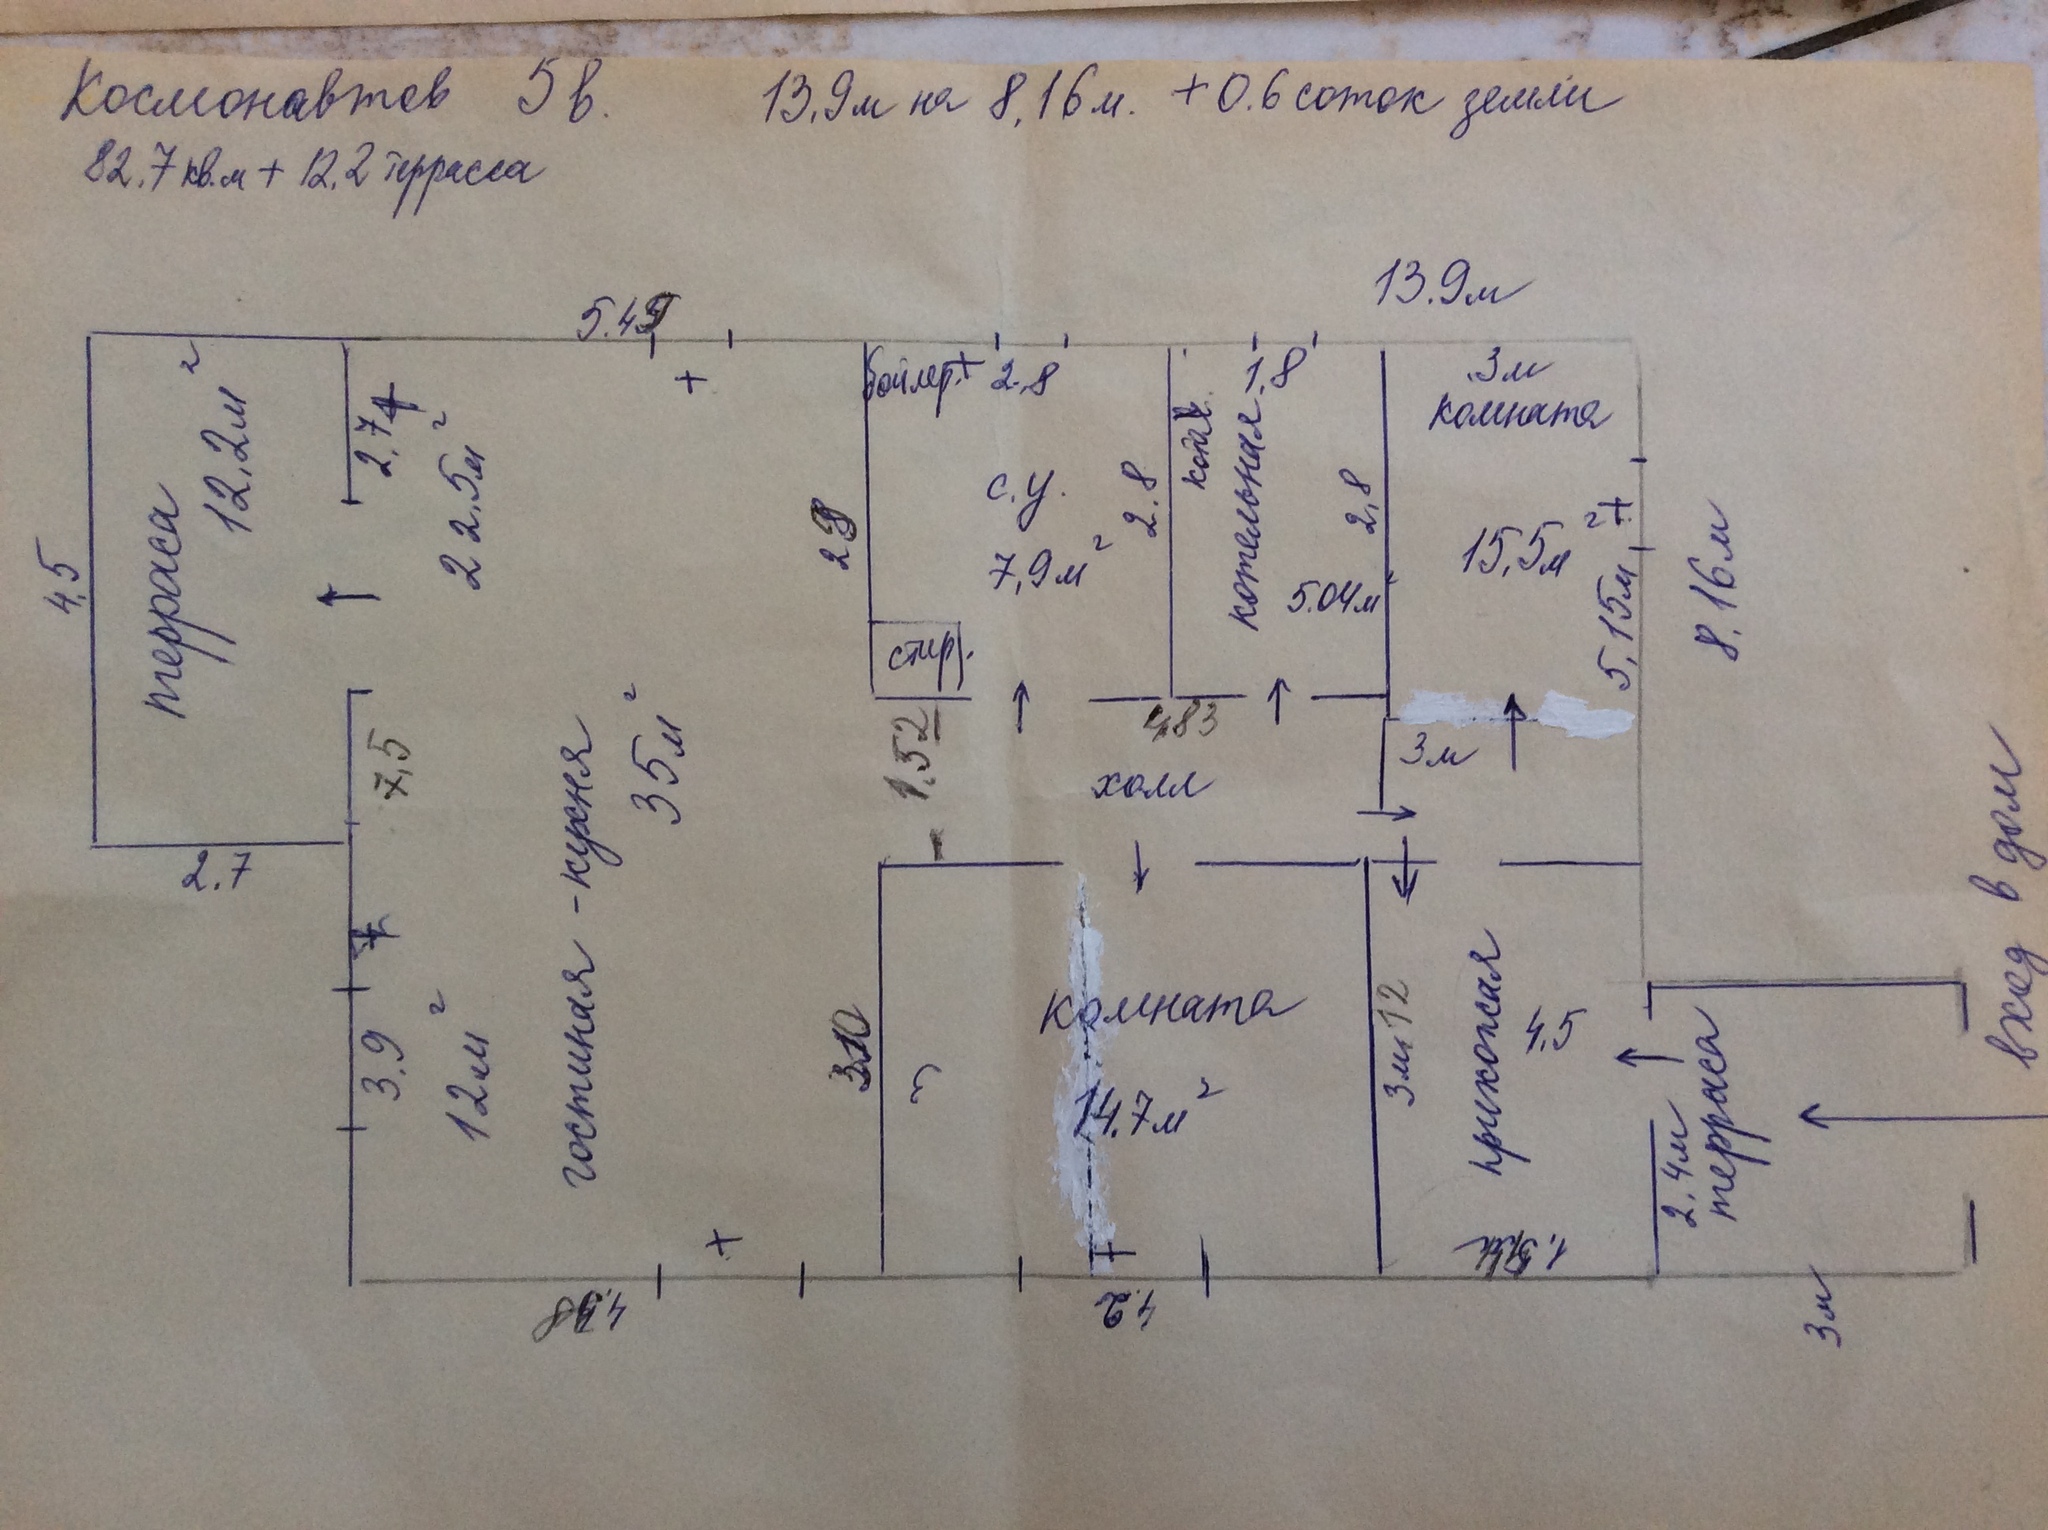 Космонавтов 5в. 13,9м на 8,16м. +0.6 соток земли
82.7 кв.м + 12.2 терраса
13.9м
5.45
4.5
терраса
12,2м²
2.7
2.7
22.5м²
7,5
3.9
12м²
гостиная - кухня
35м²
бойлер.
2.8
с.у.
7,9м²
2.8
стир.
котел
1.8
котельная
2,8
5.04м
3м
комната
15,5м²
5,15м
8.16м
1.52
4,83
холл
3м
3.10
комната
14.7м²
3м12
прихожая
4.5
2.4м
терраса
вход в дом
4.2
3м